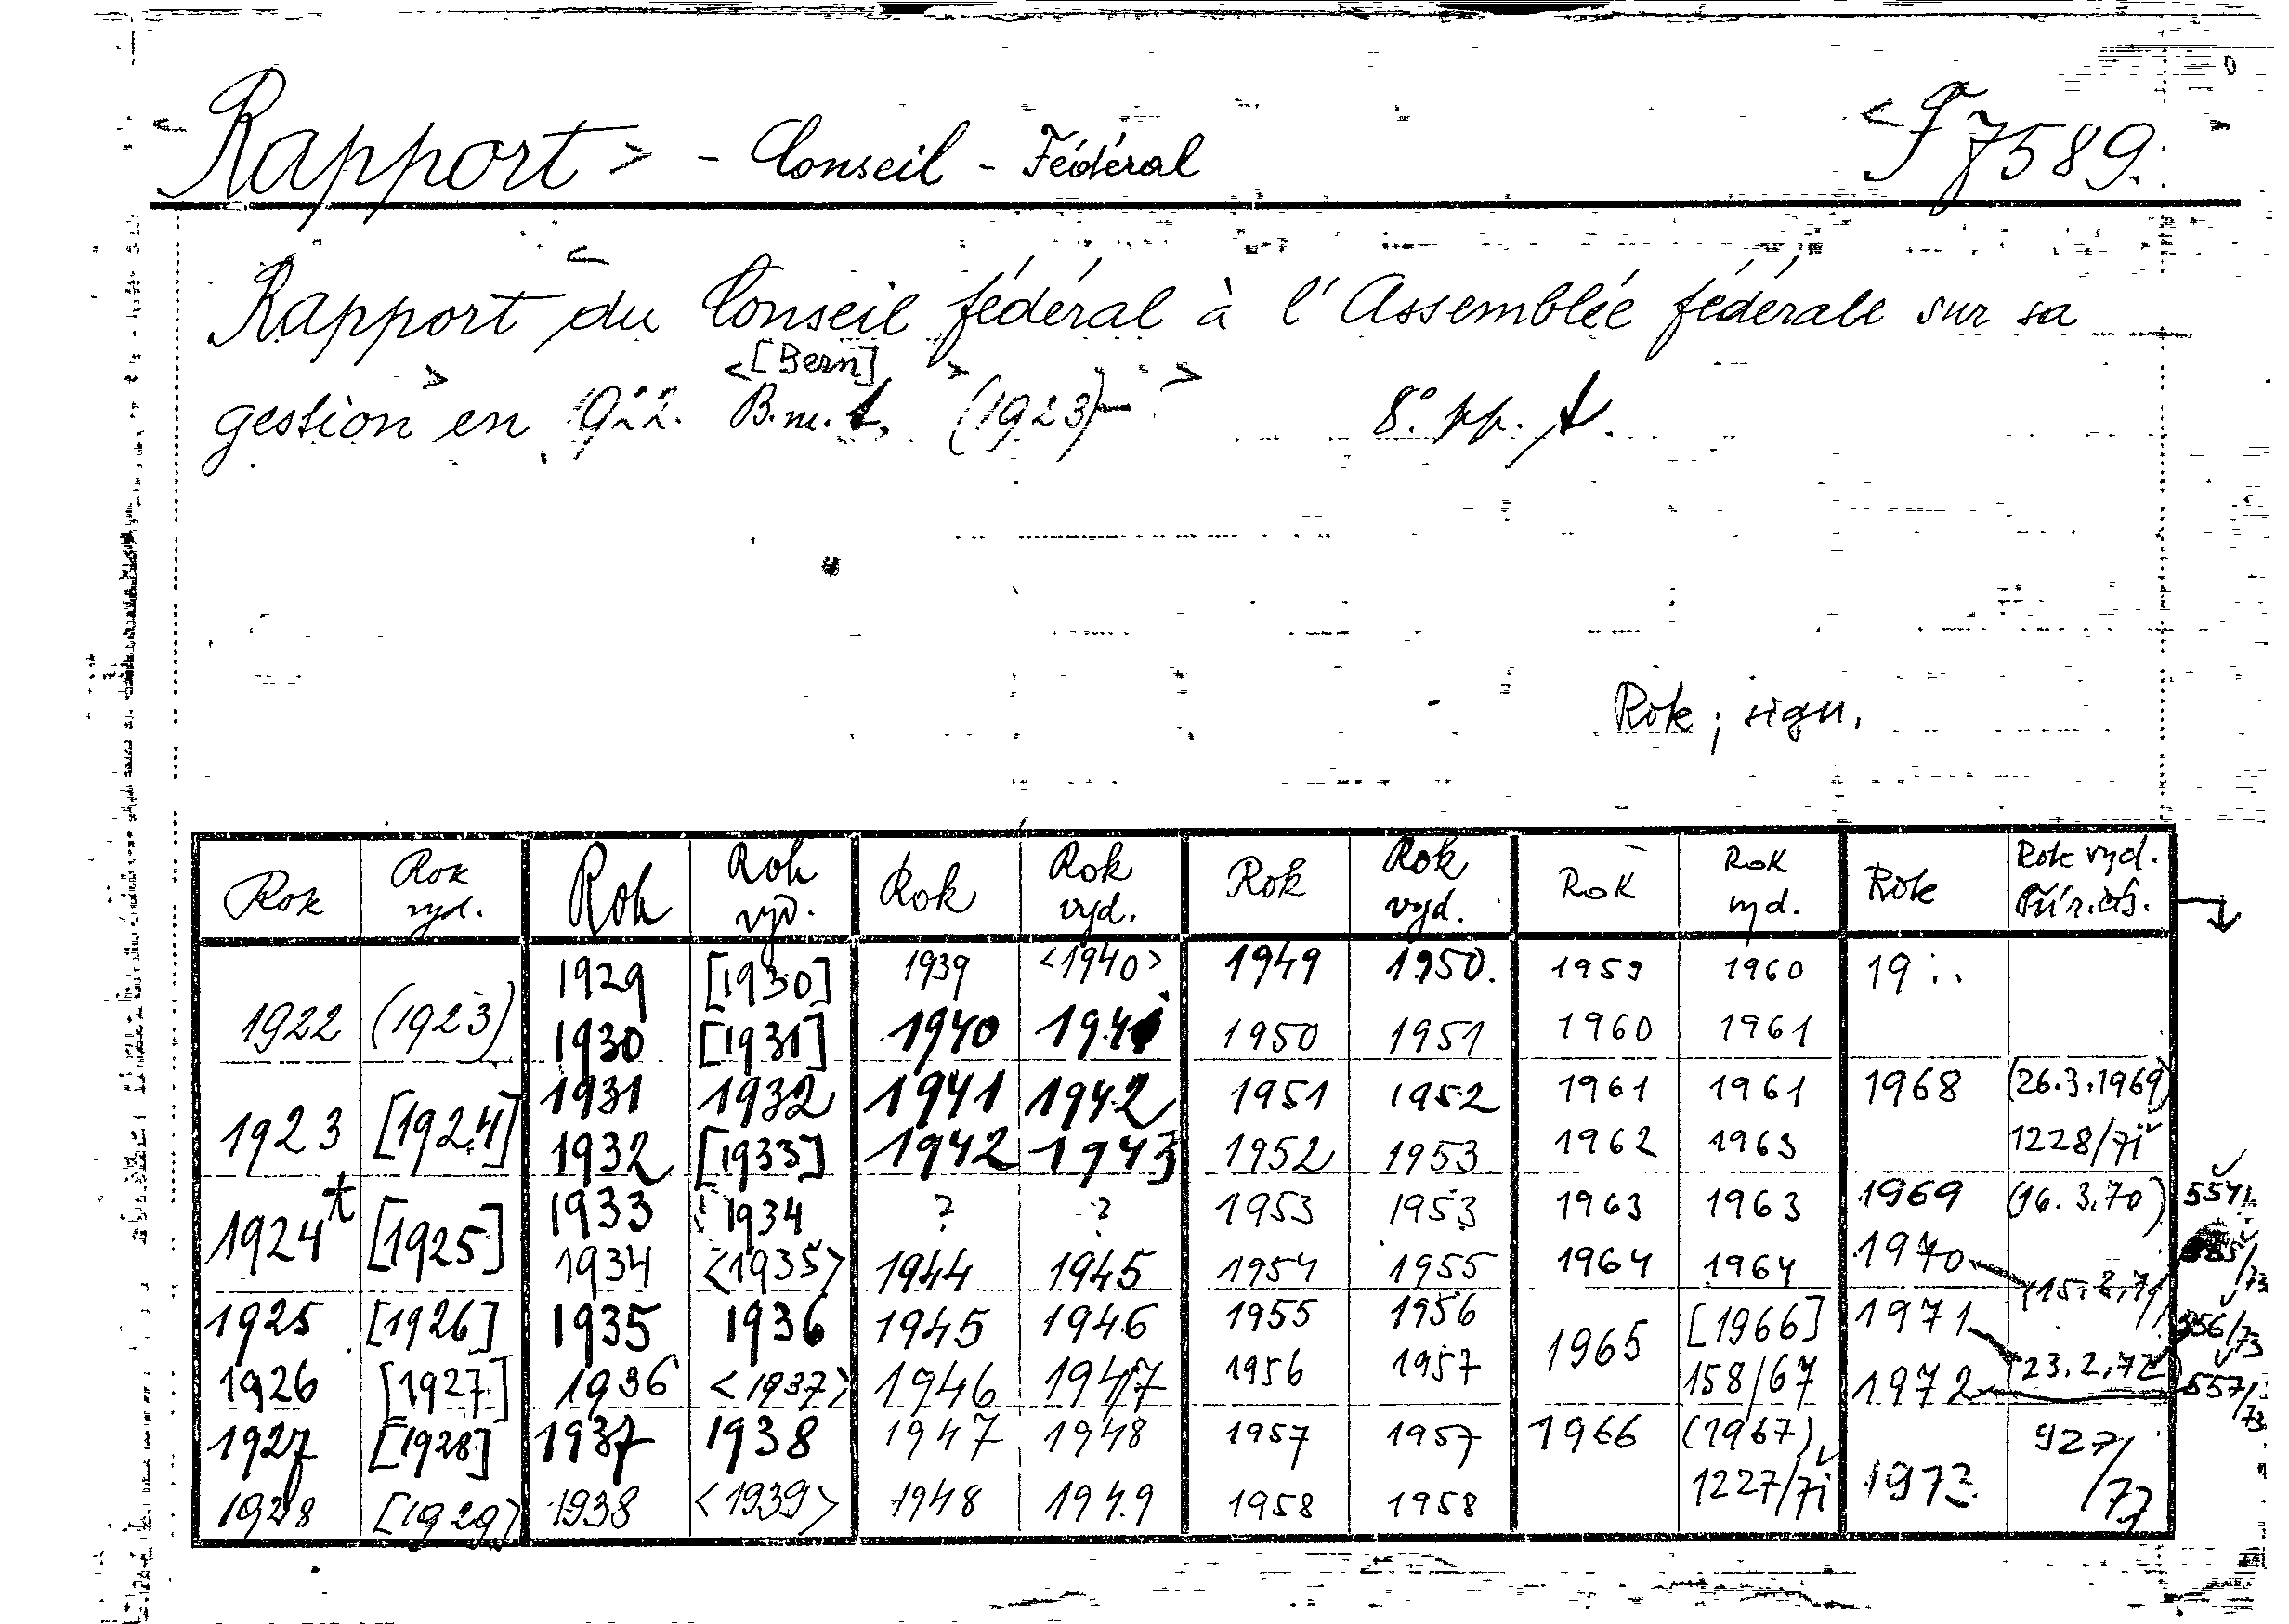 <Rapport> - Conseil - Fédéral <F 7589.
Rapport du Conseil fédéral à l'Assemblée fédérale sur sa
<[Bern]
gestion en 1922. B.m.t. (1923)- > 8° pp. t.
Rok ; sign.
Rok Rok vyd. Rok Rok vyd. Rok Rok vyd. Rok Rok vyd. Rok Rok vyd. Rok Rok vyd.
1929 [1930] 1939 <1940> 1949 1950. 1959 1960 19..
1922 (1923) 1930 [1931] 1940 1941 1950 1951 1960 1961
1931 1932 1941 1942 1951 1952 1961 1961 1968 (26.3.1969)
1923 [1924] 1932 [1933] 1942 1943 1952 1953 1962 1963 1228/71
1933 1934 ? ? 1953 1953 1963 1963 1969 (16.3.70)
1924 t [1925] 1934 <1935> 1944 1945 1954 1955 1964 1964 1970
1925 [1926] 1935 1936 1945 1946 1955 1956 1965 [1966] 1971
1926 [1927] 1936 <1937> 1946 1947 1956 1957 158/67 1972 23.2.72 557/73
1927 [1928] 1937 1938 1947 1948 1957 1957 1966 (1967) 927/77
1928 [1929> 1938 <1939> 1948 1949 1958 1958 1227/71 1973